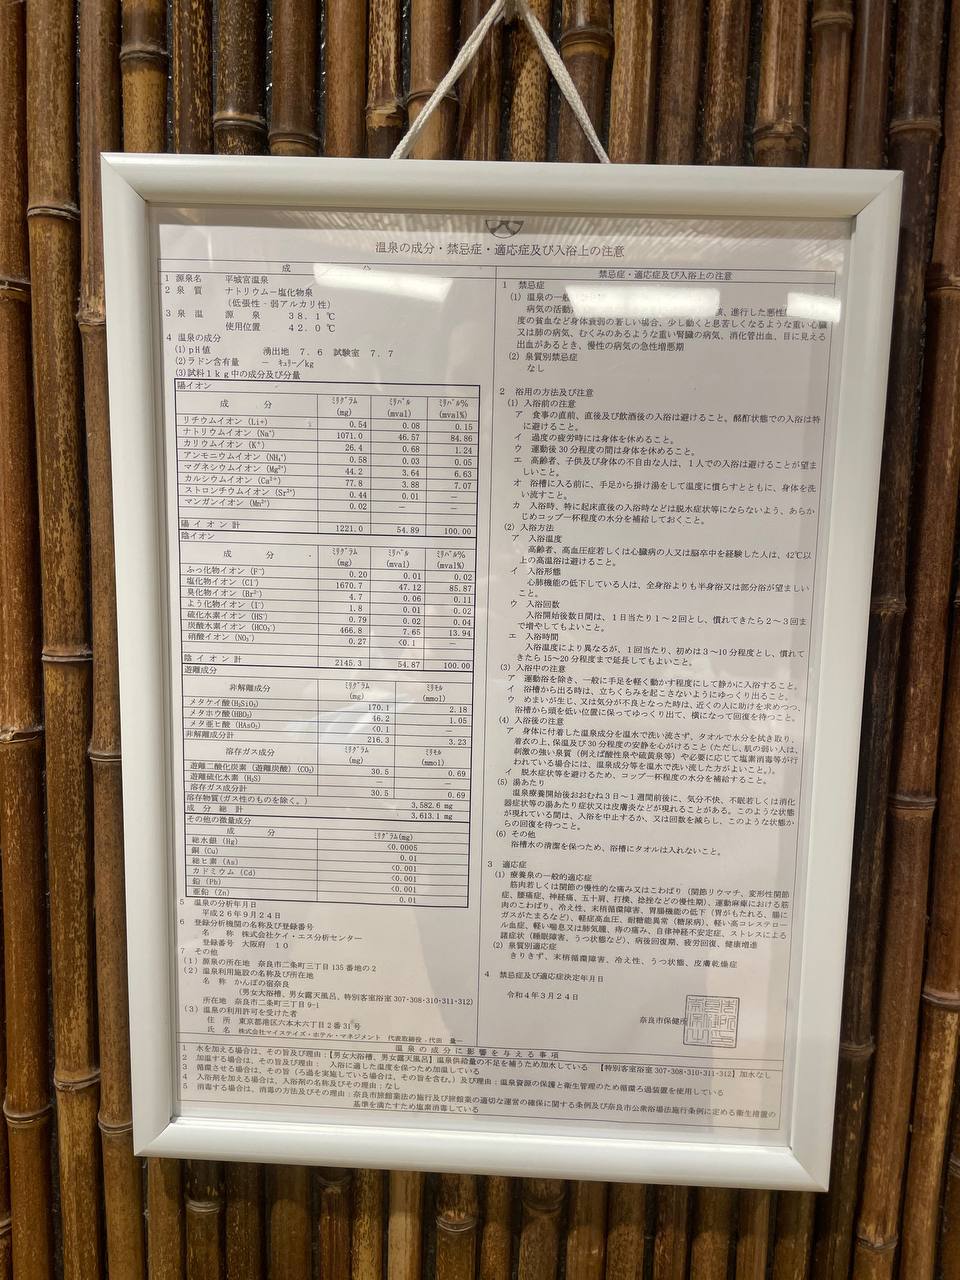 温泉の成分・禁忌症・適応症及び入浴上の注意
成 分
1 源泉名 平城宮温泉
2 泉 質 ナトリウム－塩化物泉
(低張性‐弱アルカリ性)
3 泉 温 源 泉 38.1℃
使用位置 42.0℃
4 温泉の成分
(1)pH値 湧出地 7.6 試験室 7.7
(2)ラドン含有量 － ｷｭﾘｰ／kg
(3)試料1kg中の成分及び分量
陽イオン
成 分 ﾐﾘｸﾞﾗﾑ (mg) ﾐﾘﾊﾞﾙ (mval) ﾐﾘﾊﾞﾙ% (mval%)
リチウムイオン (Li+) 0.54 0.08 0.15
ナトリウムイオン (Na⁺) 1071.0 46.57 84.86
カリウムイオン (K⁺) 26.4 0.68 1.24
アンモニウムイオン (NH₄⁺) 0.58 0.03 0.05
マグネシウムイオン (Mg²⁺) 44.2 3.64 6.63
カルシウムイオン (Ca²⁺) 77.8 3.88 7.07
ストロンチウムイオン (Sr²⁺) 0.44 0.01 －
マンガンイオン (Mn²⁺) 0.02 － －
陽イオン計 1221.0 54.89 100.00
陰イオン
成 分 ﾐﾘｸﾞﾗﾑ (mg) ﾐﾘﾊﾞﾙ (mval) ﾐﾘﾊﾞﾙ% (mval%)
ふっ化物イオン (F⁻) 0.20 0.01 0.02
塩化物イオン (Cl⁻) 1670.7 47.12 85.87
臭化物イオン (Br⁻) 4.7 0.06 0.11
よう化物イオン (I⁻) 1.8 0.01 0.02
硫化水素イオン (HS⁻) 0.79 0.02 0.04
炭酸水素イオン (HCO₃⁻) 466.8 7.65 13.94
硝酸イオン (NO₃⁻) 0.27 <0.1 －
陰イオン計 2145.3 54.87 100.00
遊離成分
非解離成分 ﾐﾘｸﾞﾗﾑ (mg) ﾐﾘﾓﾙ (mmol)
メタケイ酸(H₂SiO₃) 170.1 2.18
メタホウ酸(HBO₂) 46.2 1.05
メタ亜ヒ酸 (HAsO₂) <0.1 －
非解離成分計 216.3 3.23
溶存ガス成分 ﾐﾘｸﾞﾗﾑ (mg) ﾐﾘﾓﾙ (mmol)
遊離二酸化炭素 (遊離炭酸) (CO₂) 30.5 0.69
遊離硫化水素 (H₂S) － －
溶存ガス成分計 30.5 0.69
溶存物質(ガス性のものを除く。) 3,582.6 mg
成 分 総 計 3,613.1 mg
その他の微量成分
成 分 ﾐﾘｸﾞﾗﾑ(mg)
総水銀 (Hg) <0.0005
銅 (Cu) 0.01
総ヒ素 (As) <0.001
カドミウム (Cd) <0.001
鉛 (Pb) <0.001
亜鉛 (Zn) 0.01
5 温泉の分析年月日
平成26年9月24日
6 登録分析機関の名称及び登録番号
名 称 株式会社ケイ・エス分析センター
登録番号 大阪府 10
7 その他
(1) 源泉の所在地 奈良市二条町三丁目135番地の2
(2) 温泉利用施設の名称及び所在地
名 称 かんぽの宿奈良
(男女大浴槽、男女露天風呂、特別客室浴室 307-308-310-311-312)
所在地 奈良市二条町三丁目9-1
(3) 温泉の利用許可を受けた者
住 所 東京都港区六本木六丁目2番31号
氏 名 株式会社マイステイズ・ホテル・マネジメント 代表取締役 代田 量一
禁忌症・適応症及び入浴上の注意
1 禁忌症
(1) 温泉の一般
病気の活動 、進行した悪性
度の貧血など身体衰弱の著しい場合、少し動くと息苦しくなるような重い心臓
又は肺の病気、むくみのあるような重い腎臓の病気、消化管出血、目に見える
出血があるとき、慢性の病気の急性増悪期
(2) 泉質別禁忌症
なし
2 浴用の方法及び注意
(1) 入浴前の注意
ア 食事の直前、直後及び飲酒後の入浴は避けること。酩酊状態での入浴は特
に避けること。
イ 過度の疲労時には身体を休めること。
ウ 運動後30分程度の間は身体を休めること。
エ 高齢者、子供及び身体の不自由な人は、1人での入浴は避けることが望ま
しいこと。
オ 浴槽に入る前に、手足から掛け湯をして温度に慣らすとともに、身体を洗
い流すこと。
カ 入浴時、特に起床直後の入浴時などは脱水症状等にならないよう、あらか
じめコップ一杯程度の水分を補給しておくこと。
(2) 入浴方法
ア 入浴温度
高齢者、高血圧症若しくは心臓病の人又は脳卒中を経験した人は、42℃以
上の高温浴は避けること。
イ 入浴形態
心肺機能の低下している人は、全身浴よりも半身浴又は部分浴が望ましい
こと。
ウ 入浴回数
入浴開始後数日間は、1日当たり1～2回とし、慣れてきたら2～3回ま
で増やしてもよいこと。
エ 入浴時間
入浴温度により異なるが、1回当たり、初めは3～10分程度とし、慣れて
きたら15～20分程度まで延長してもよいこと。
(3) 入浴中の注意
ア 運動浴を除き、一般に手足を軽く動かす程度にして静かに入浴すること。
イ 浴槽から出る時は、立ちくらみを起こさないようにゆっくり出ること。
ウ めまいが生じ、又は気分が不良となった時は、近くの人に助けを求めつつ、
浴槽から頭を低い位置に保ってゆっくり出て、横になって回復を待つこと。
(4) 入浴後の注意
ア 身体に付着した温泉成分を温水で洗い流さず、タオルで水分を拭き取り、
着衣の上、保温及び30分程度の安静を心がけること(ただし、肌の弱い人は、
刺激の強い泉質(例えば酸性泉や硫黄泉等)や必要に応じて塩素消毒等が行
われている場合には、温泉成分等を温水で洗い流した方がよいこと。)。
イ 脱水症状等を避けるため、コップ一杯程度の水分を補給すること。
(5) 湯あたり
温泉療養開始後おおむね3日～1週間前後に、気分不快、不眠若しくは消化
器症状等の湯あたり症状又は皮膚炎などが現れることがある。このような状態
が現れている間は、入浴を中止するか、又は回数を減らし、このような状態か
らの回復を待つこと。
(6) その他
浴槽水の清潔を保つため、浴槽にタオルは入れないこと。
3 適応症
(1) 療養泉の一般的適応症
筋肉若しくは関節の慢性的な痛み又はこわばり(関節リウマチ、変形性関節
症、腰痛症、神経痛、五十肩、打撲、捻挫などの慢性期)、運動麻痺における筋
肉のこわばり、冷え性、末梢循環障害、胃腸機能の低下(胃がもたれる、腸に
ガスがたまるなど)、軽症高血圧、耐糖能異常(糖尿病)、軽い高コレステロー
ル血症、軽い喘息又は肺気腫、痔の痛み、自律神経不安定症、ストレスによる
諸症状(睡眠障害、うつ状態など)、病後回復期、疲労回復、健康増進
(2) 泉質別適応症
きりきず、末梢循環障害、冷え性、うつ状態、皮膚乾燥症
4 禁忌症及び適応症決定年月日
令和4年3月24日
奈良市保健所
温泉の成分に影響を与える事項
1 水を加える場合は、その旨及び理由：【男女大浴槽、男女露天風呂】温泉供給量の不足を補うため加水している 【特別客室浴室 307-308-310-311-312】加水なし
2 加温する場合は、その旨及び理由： 入浴に適した温度を保つため加温している
3 循環させる場合は、その旨(ろ過を実施している場合は、その旨を含む。)及び理由：温泉資源の保護と衛生管理のため循環ろ過装置を使用している
4 入浴剤を加える場合は、入浴剤の名称及びその理由：なし
5 消毒する場合は、消毒の方法及びその理由：奈良市旅館業法の施行及び旅館業の適切な運営の確保に関する条例及び奈良市公衆浴場法施行条例に定める衛生措置の
基準を満たすため塩素消毒している